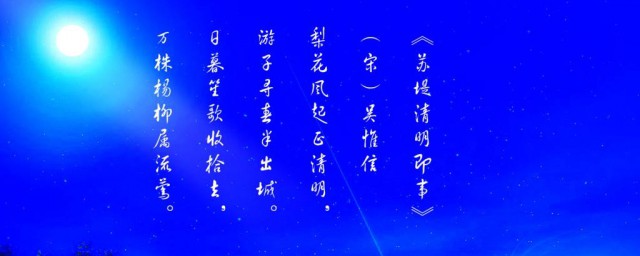 《苏堤清明即事》
（宋）吴惟信
梨花风起正清明，
游子寻春半出城。
日暮笙歌收拾去，
万株杨柳属流莺。